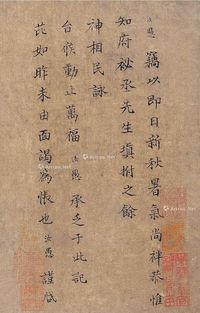 汝愚
竊以即日新秋暑氣尚祥恭惟
知府祕丞先生填拊之餘
神相民詠
台候動止萬福汝愚承乏于此記
芘如昨未由面謁為悵也汝愚謹啟